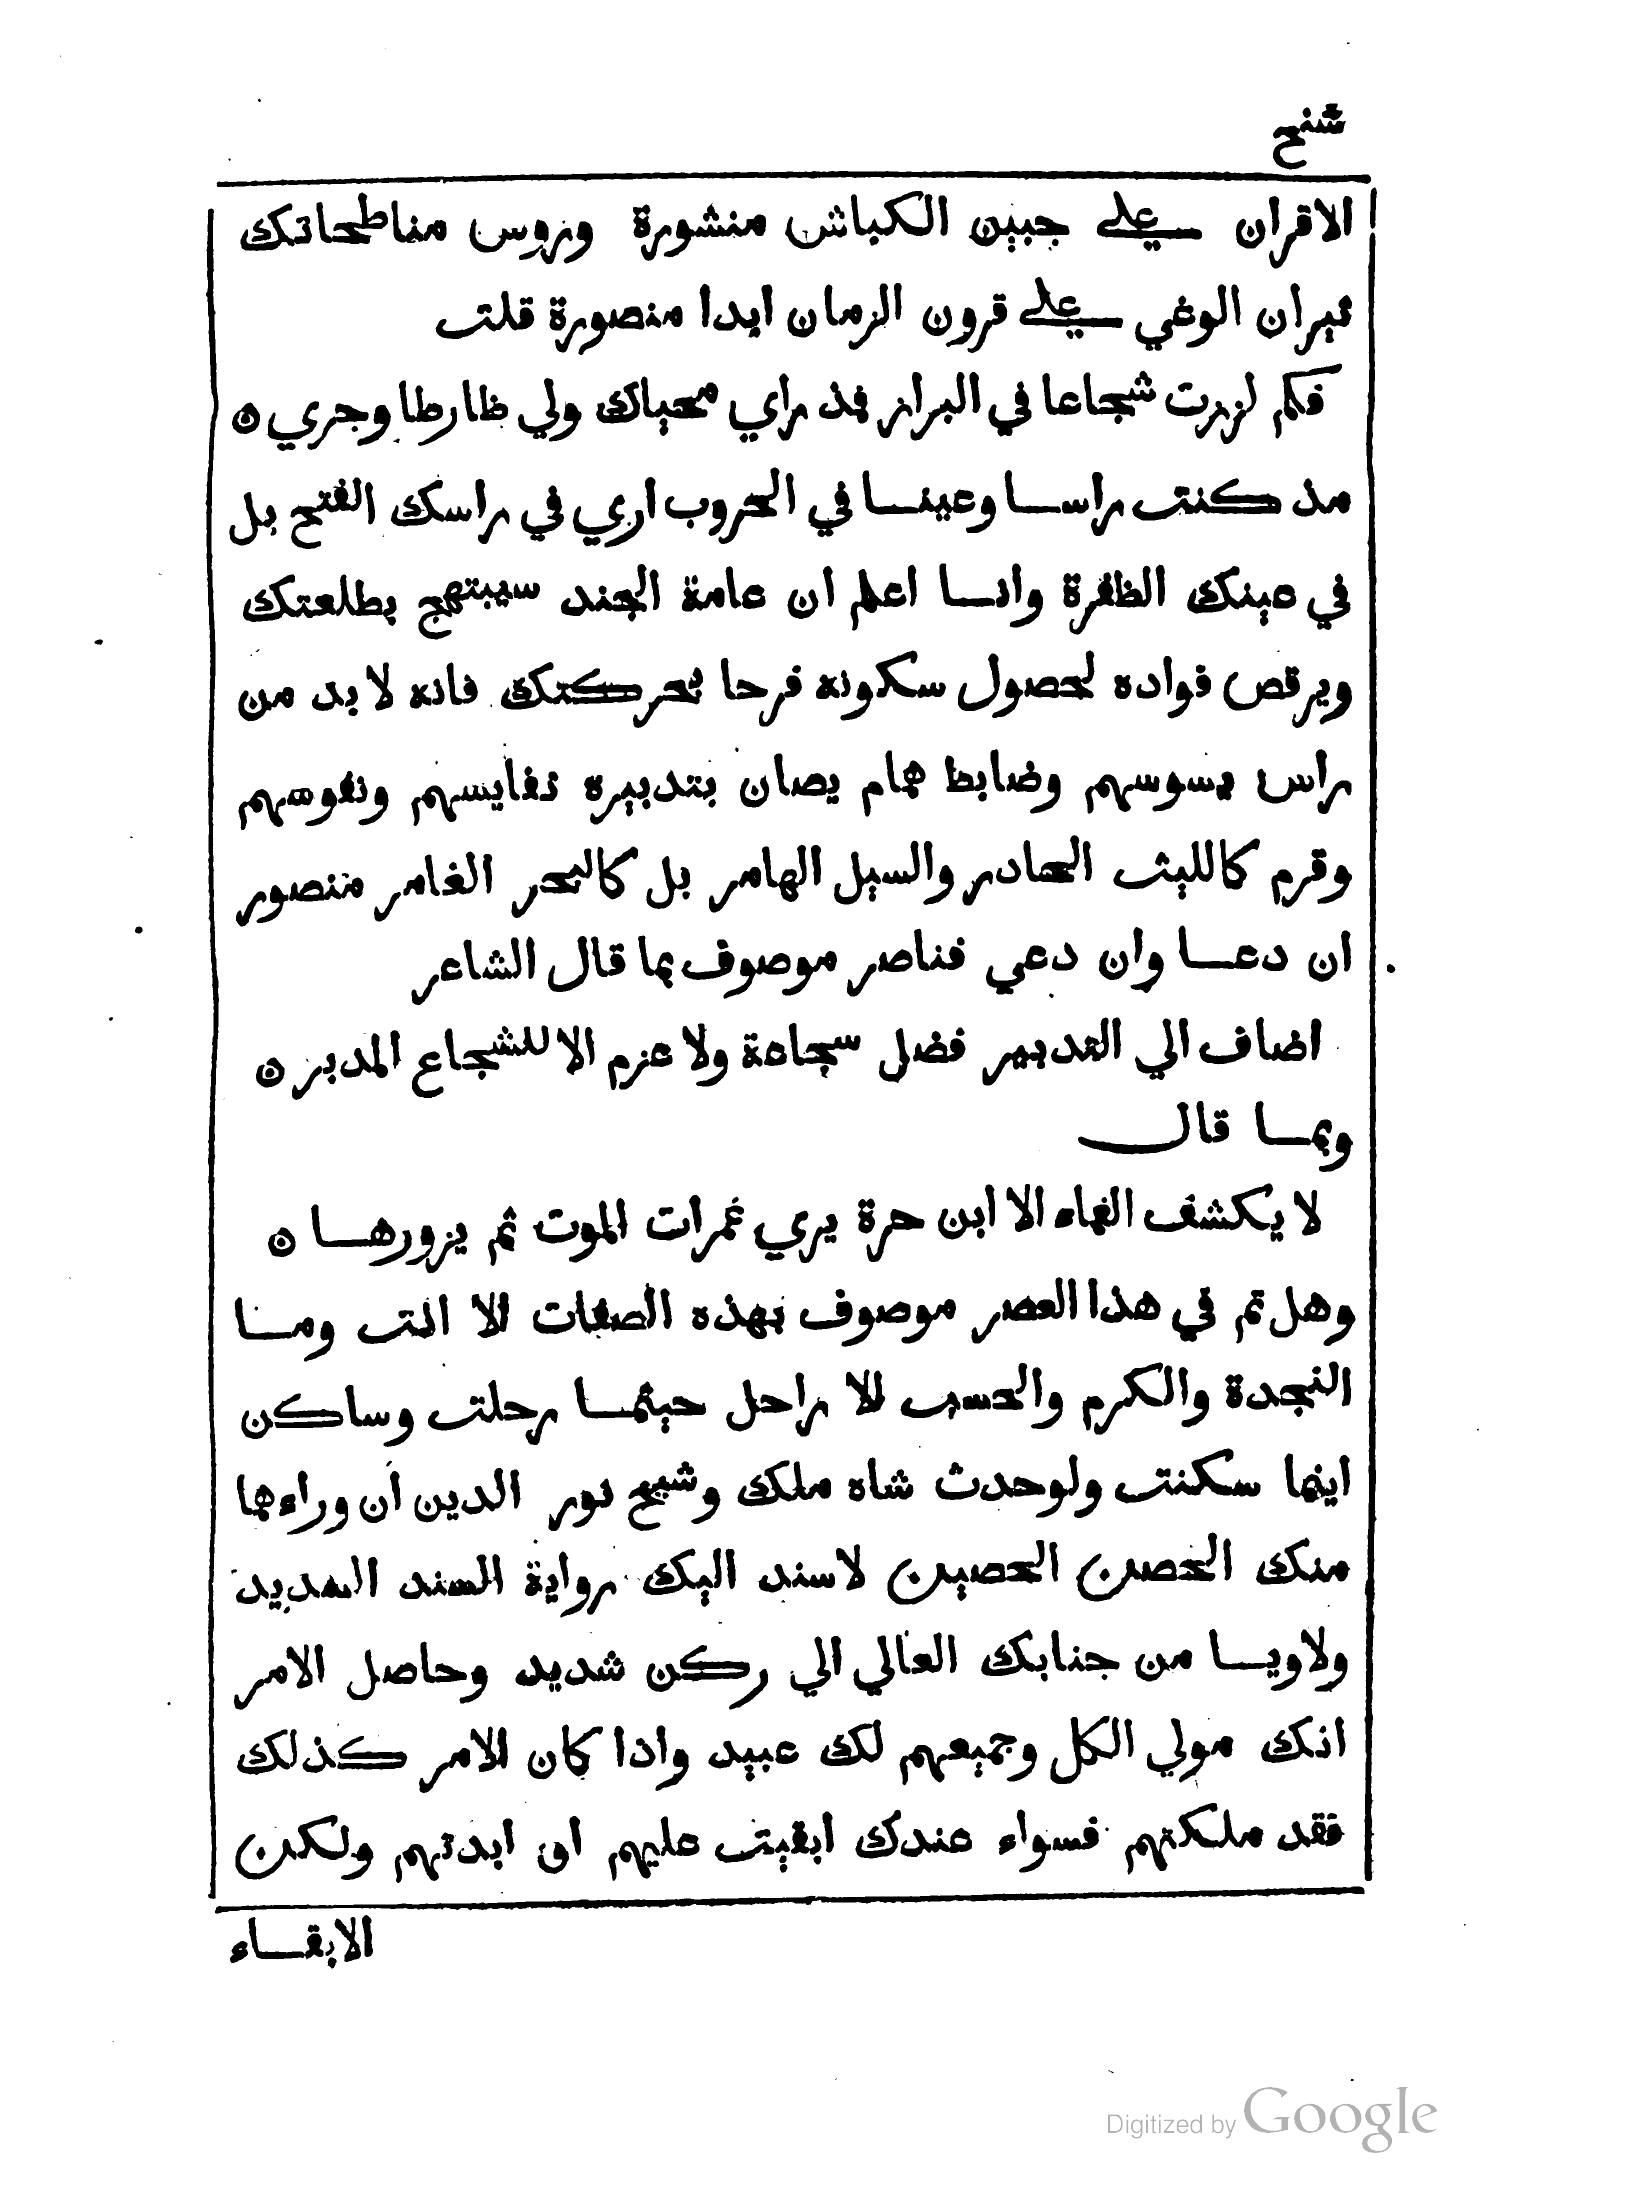 شنح
الاقران علي جبين الكباش منشورة وروس مناطحاتك
نيران الوغي علي قرون الزمان ابدا منصورة قلت
فكم لززت شجاعا في البراز فمذ راي محياك ولي ظارطا وجري ٥
مذ كنت راسا وعينا في الحروب اري في راسك الفتح بل
في عينك الظفرة وانا اعلم ان عامة الجند سيبتهج بطلعتك
ويرقص فواده لحصول سكونه فرحا بحركتك فانه لا بد من
راس يسوسهم وضابط همام يصان بتدبيره نفايسهم ونفوسهم
وقرم كالليث الحادر والسيل الهامر بل كالبحر الغامر منصور
ان دعا وان دعي فناصر موصوف بما قال الشاعر
اضاف الي التدبير فضل سجاعة ولا عزم الا للشجاع المدبر ٥
وبما قال
لا يكشف الغماء الا ابن حرة يري غمرات الموت ثم يزورها ٥
وهل تم في هذا العصر موصوف بهذه الصفات الا انت وما
النجدة والكرم والحسب الا راحل حيثما رحلت وساكن
اينما سكنت ولو حدث شاه ملك وشيخ نور الدين ان وراءهما
منك الحصن الحصين لاسند اليك رواية السند السديد
ولاويا من جنابك العالي الي ركن شديد وحاصل الامر
انك مولي الكل وجميعهم لك عبيد واذا كان الامر كذلك
فقد ملكتهم فسواء عندك ابقيت عليهم او ابدتهم ولكن
الابقاء
Digitized by Google